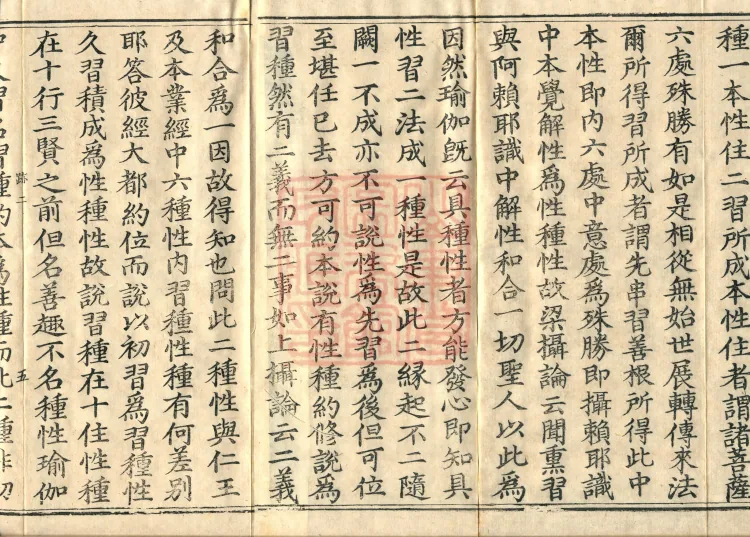 種一本性住二習所成本性住者謂諸菩薩
六處殊勝有如是相從無始世展轉傳來法
爾所得習所成者謂先串習善根所得此中
本性即內六處中意處為殊勝即攝賴耶識
中本覺解性為性種性故梁攝論云聞熏習
與阿賴耶識中解性和合一切聖人以此為
因然瑜伽旣云具種性者方能發心即知具
性習二法成一種性是故此二緣起不二隨
闕一不成亦不可說性為先習為後但可位
至堪任已去方可約本說有性種約修說為
習種然有二義而無二事如上攝論云二義
和合為一因故得知也問此二種性與仁王
及本業經中六種性內習種性種有何差別
耶答彼經大都約位而說以初習為習種性
久習積成為性種性故說習種在十住性種
在十行三賢之前但名善趣不名種性瑜伽
路二 五